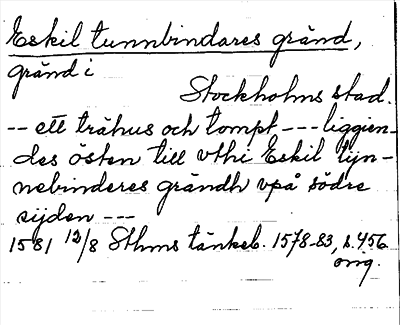 Eskil tunnbindares gränd,
gränd i
Stockholms stad.
-- ett trähus och tompt --- liggien-
des östen till vthi Eskil tyn-
nebinderes grändh vpå södre
sijden ---
1581 12/8 Sthms tänkeb. 1578-83, s. 456
orig.